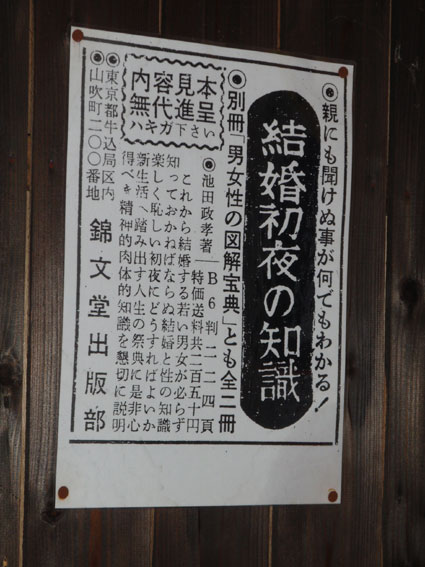 ◉親にも聞けぬ事が何でもわかる!
結婚初夜の知識
◉別冊「男女性の図解宝典」とも全二冊
●池田政孝著 B6判二二四頁
特価送料共二百五十円
これから結婚する若い男女が必らず
知っておかねばならぬ結婚と性の知識
楽しく恥しい初夜にどうすればよいか
新生活へ踏み出す人生の祭典に是非心
得べき精神的肉体的知識を懇切に説明
内容見本
無代進呈
ハガキ下さい
◉東京都牛込局区内
◉山吹町二〇〇番地
錦文堂出版部